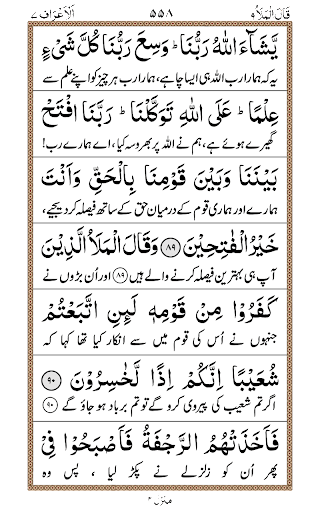 قَالَ الْمَلَاُ ۹ ۵۵۸ اَلْاَعْرَاف ۷
يَّشَآءَ اللّٰهُ رَبُّنَا ؕ وَسِعَ رَبُّنَا كُلَّ شَىْءٍ
یہ کہ ہمارا رب اللہ ہی ایسا چاہے، ہمارا رب ہر چیز کو اپنے علم سے
عِلْمًا ؕ عَلَى اللّٰهِ تَوَكَّلْنَا ؕ رَبَّنَا افْتَحْ
گھیرے ہوئے ہے، ہم نے اللہ پر بھروسہ کیا، اے ہمارے رب!
بَيْنَنَا وَبَيْنَ قَوْمِنَا بِالْحَقِّ وَاَنْتَ
ہمارے اور ہماری قوم کے درمیان حق کے ساتھ فیصلہ کر دیجیے،
خَيْرُ الْفٰتِحِيْنَ ﴿۸۹﴾ وَقَالَ الْمَلَاُ الَّذِيْنَ
آپ ہی بہترین فیصلہ کرنے والے ہیں ﴿۸۹﴾ اور اُن بڑوں نے
كَفَرُوْا مِنْ قَوْمِهٖ لَىِٕنِ اتَّبَعْتُمْ
جنہوں نے اُس کی قوم میں سے انکار کیا تھا کہا کہ
شُعَيْبًا اِنَّكُمْ اِذًا لَّخٰسِرُوْنَ ﴿۹۰﴾
اگر تم شعیب کی پیروی کرو گے تو تم برباد ہو جاؤ گے ﴿۹۰﴾
فَاَخَذَتْهُمُ الرَّجْفَةُ فَاَصْبَحُوْا فِىْ
پھر اُن کو زلزلے نے پکڑ لیا ، پس وہ
منزل ۲